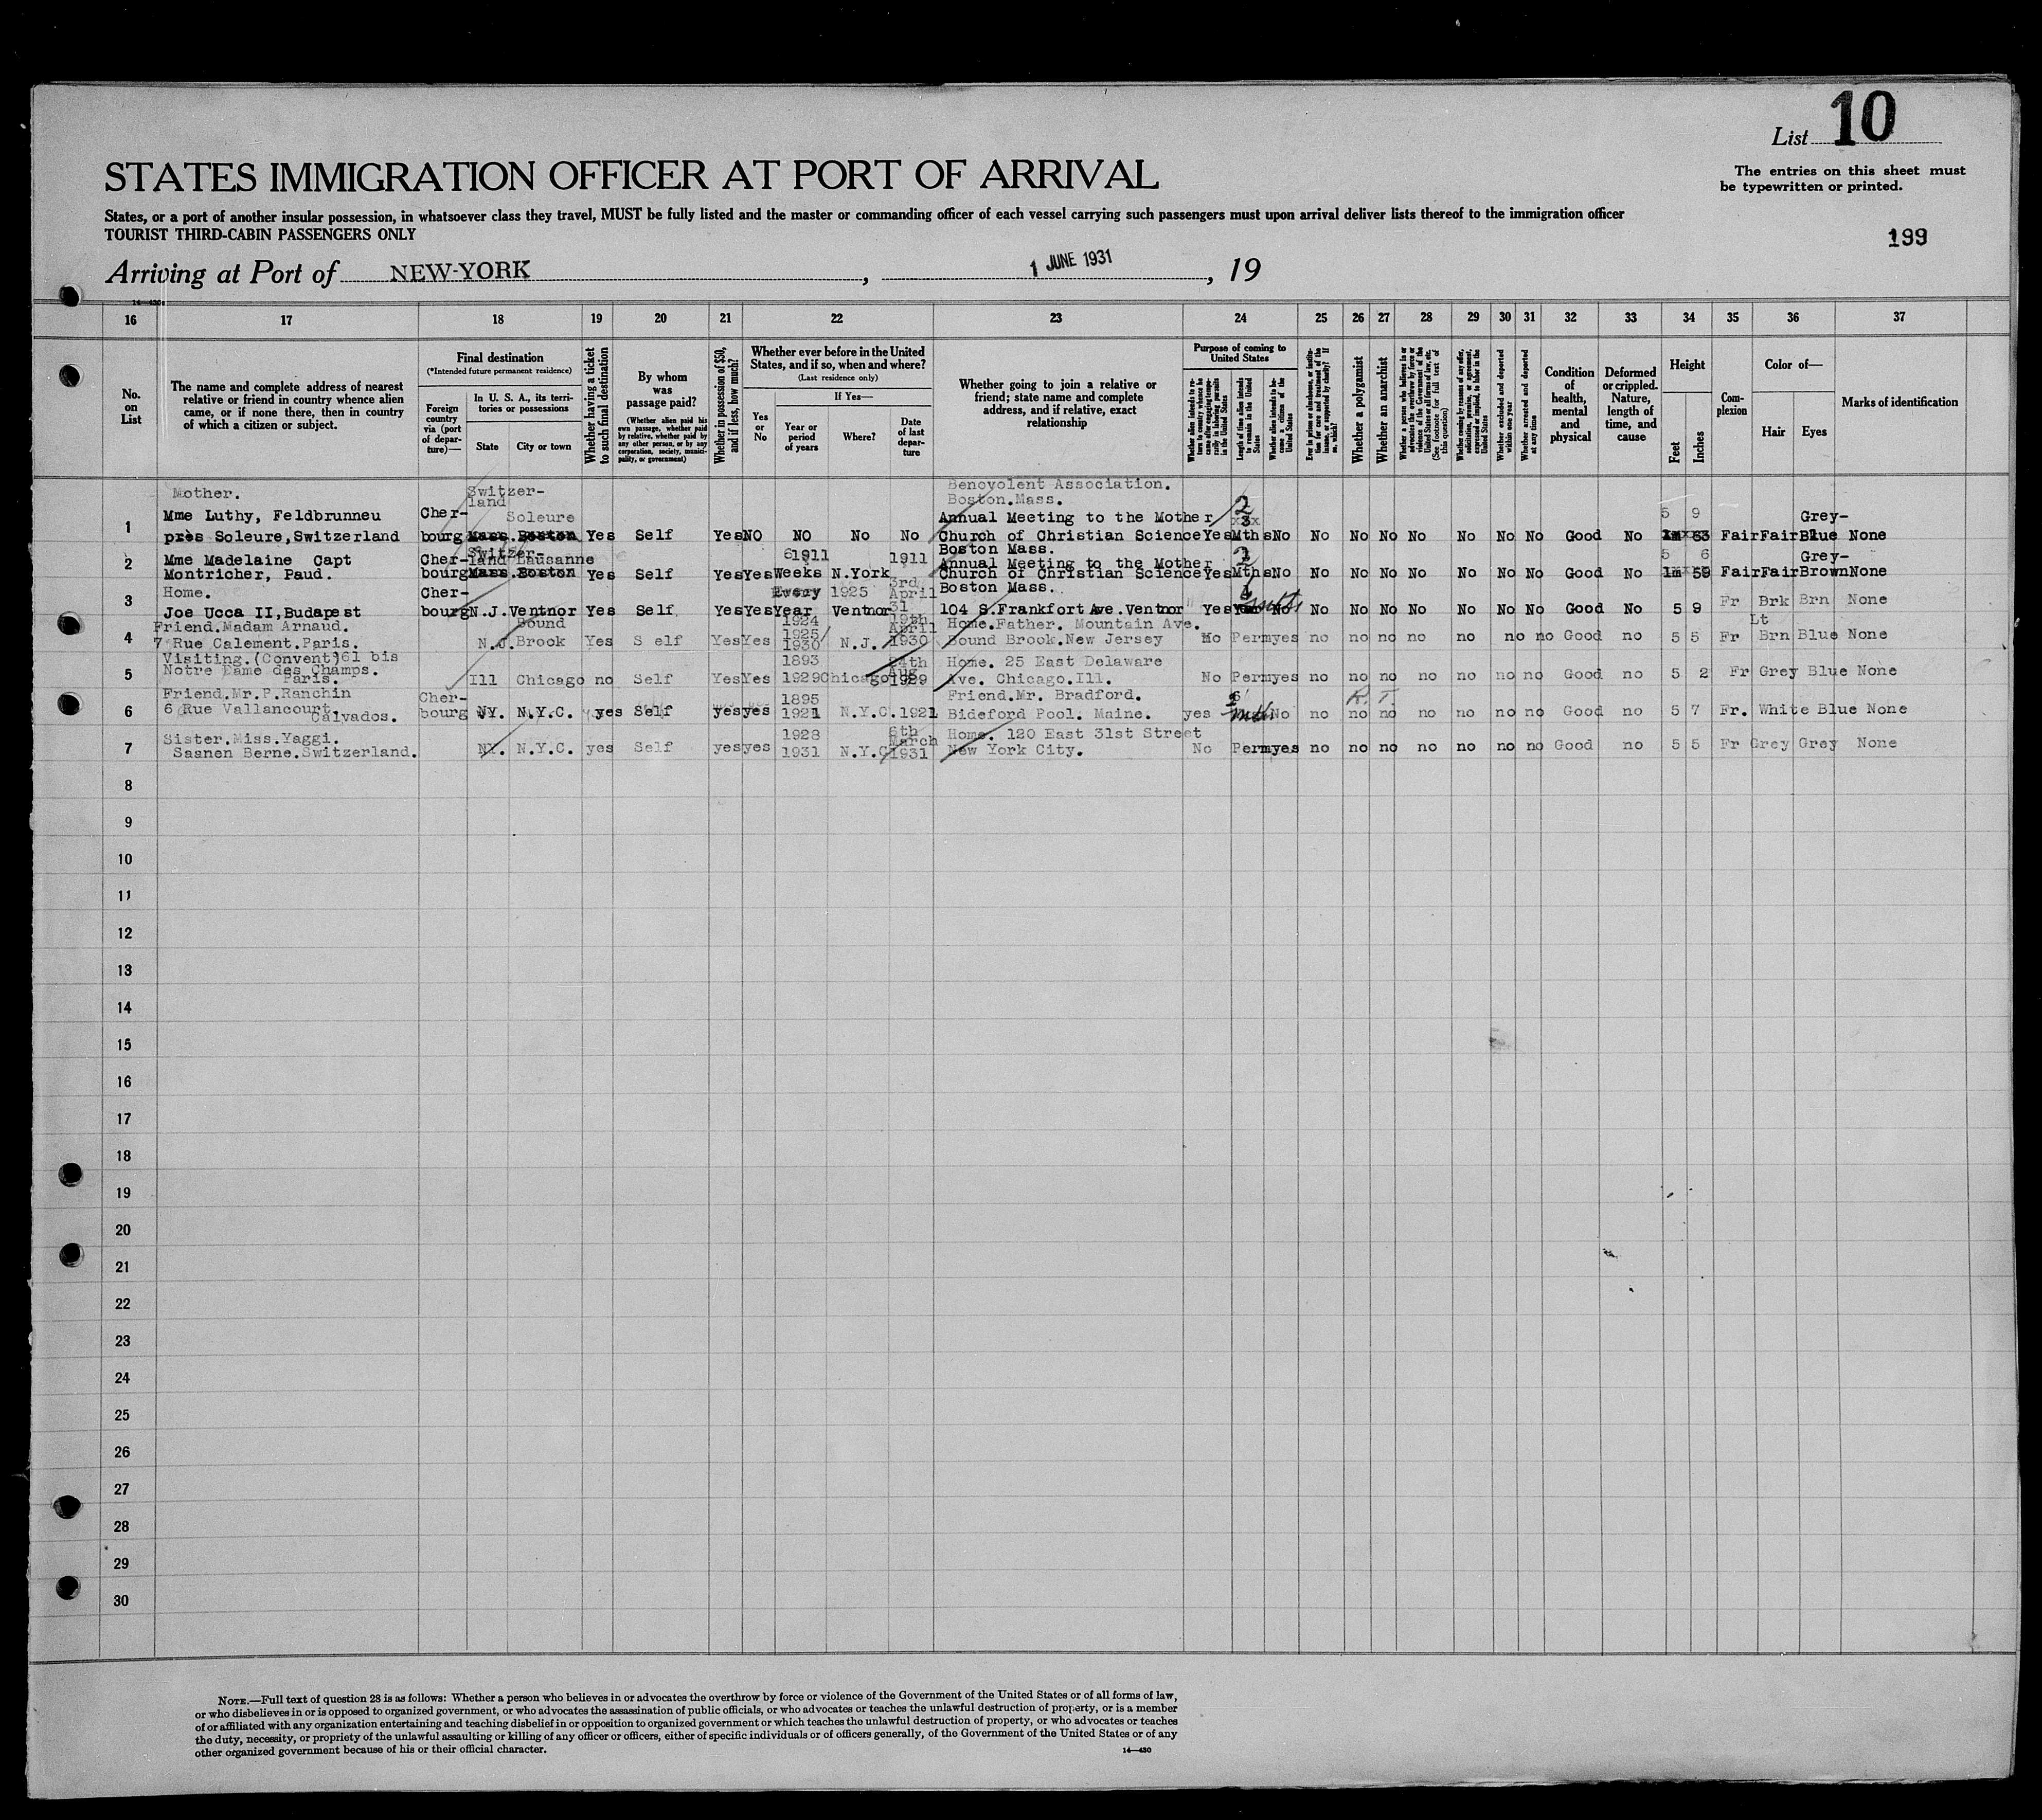 List 10
STATES IMMIGRATION OFFICER AT PORT OF ARRIVAL
The entries on this sheet must
be typewritten or printed.
States, or a port of another insular possession, in whatsoever class they travel, MUST be fully listed and the master or commanding officer of each vessel carrying such passengers must upon arrival deliver lists thereof to the immigration officer
TOURIST THIRD-CABIN PASSENGERS ONLY
199
Arriving at Port of NEW-YORK, 1 JUNE 1931, 19
14—430
16 17 18 19 20 21 22 23 24 25 26 27 28 29 30 31 32 33 34 35 36 37
No. on List
The name and complete address of nearest relative or friend in country whence alien came, or if none there, then in country of which a citizen or subject.
Final destination
(*Intended future permanent residence)
Foreign country via (port of departure)—
In U. S. A., its territories or possessions
State
City or town
Whether having a ticket to such final destination
By whom was passage paid?
(Whether alien paid his own passage, whether paid by relative, whether paid by any other person, or by any corporation, society, municipality, or government)
Whether in possession of $50, and if less, how much?
Whether ever before in the United States, and if so, when and where?
(Last residence only)
Yes or No
If Yes—
Year or period of years
Where?
Date of last departure
Whether going to join a relative or friend; state name and complete address, and if relative, exact relationship
Purpose of coming to United States
Whether alien intends to return to country whence he came after engaging temporarily in laboring pursuits in the United States
Length of time alien intends to remain in the United States
Whether alien intends to become a citizen of the United States
Ever in prison or almshouse, or institution for care and treatment of the insane, or supported by charity? If so, which?
Whether a polygamist
Whether an anarchist
Whether a person who believes in or advocates the overthrow by force or violence of the Government of the United States or all forms of law, etc. (See footnote for full text of this question)
Whether coming by reason of any offer, solicitation, promise, or agreement, expressed or implied, to labor in the United States
Whether excluded and deported within one year
Whether arrested and deported at any time
Condition of health, mental and physical
Deformed or crippled. Nature, length of time, and cause
Height
Feet
Inches
Complexion
Color of—
Hair
Eyes
Marks of identification
Mother. Switzer-land Benevolent Association.
Boston.Mass.
Mme Luthy, Feldbrunneu Cher- Soleure Annual Meeting to the Mother 2 5 9 Grey-
1 près Soleure,Switzerland bourg Mass. Boston Yes Self Yes NO NO No No Church of Christian Science Yes Mths No No No No No No No No Good No Fair Fair Blue None
Switzer- Boston Mass.
2 Mme Madelaine Capt Cher- land Lausanne 1911 1911 Annual Meeting to the Mother 2 5 6 Grey-
Montricher, Paud. bourg Mass. Boston Yes Self Yes Yes Weeks N.York Church of Christian Science Yes Mths No No No No No No No No Good No 1m 59 Fair Fair Brown None
3 Home. Cher- Every 1925 3rd April Boston Mass.
Joe Ucca II,Budapest bourg N.J. Ventnor Yes Self Yes Yes Year Ventnor 31 104 S.Frankfort Ave.Ventnor Yes No No No No No No No No Good No 5 9 Fr Brk Brn None
Friend.Madam Arnaud. Bound 1924 19th April Home.Father. Mountain Ave. Lt
4 7 Rue Calement.Paris. N.J. Brook Yes Self Yes Yes 1925/1930 N.J. 1930 Bound Brook.New Jersey No Perm yes no no no no no no no Good no 5 5 Fr Brn Blue None
Visiting.(Convent)61 bis 1893 24th Aug Home. 25 East Delaware
5 Notre Dame des Champs. Paris. Ill Chicago no Self Yes Yes 1929 Chicago 1929 Ave. Chicago.Ill. No Perm yes no no no no no no no Good no 5 2 Fr Grey Blue None
Friend.Mr.P.Ranchin Cher- 1895 Friend.Mr. Bradford. R.T.
6 6 Rue Vallancourt. Calvados. bourg NY. N.Y.C. yes Self yes yes 1921 N.Y.C. 1921 Bideford Pool. Maine. yes mth No no no no no no no no Good no 5 7 Fr. White Blue None
Sister.Miss.Yaggi. 1928 6th March Home. 120 East 31st Street
7 Saanen Berne.Switzerland. NY. N.Y.C. yes Self yes yes 1931 N.Y.C. 1931 New York City. No Perm yes no no no no no no no Good no 5 5 Fr Grey Grey None
8
9
10
11
12
13
14
15
16
17
18
19
20
21
22
23
24
25
26
27
28
29
30
NOTE.—Full text of question 28 is as follows: Whether a person who believes in or advocates the overthrow by force or violence of the Government of the United States or of all forms of law,
or who disbelieves in or is opposed to organized government, or who advocates the assassination of public officials, or who advocates or teaches the unlawful destruction of property, or is a member
of or affiliated with any organization entertaining and teaching disbelief in or opposition to organized government or which teaches the unlawful destruction of property, or who advocates or teaches
the duty, necessity, or propriety of the unlawful assaulting or killing of any officer or officers, either of specific individuals or of officers generally, of the Government of the United States or of any
other organized government because of his or their official character.
14—430